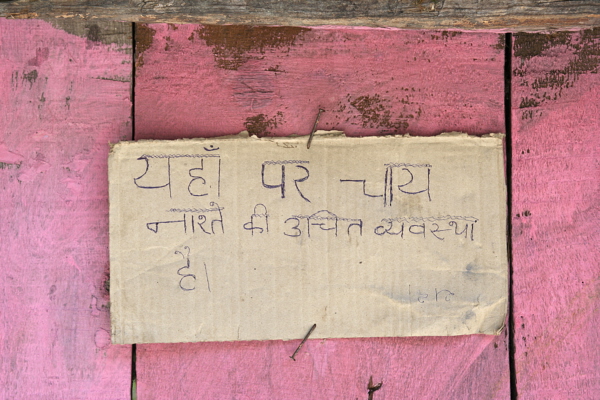 यहाँ पर चाय
नास्ते की उचित व्यवस्था
है।